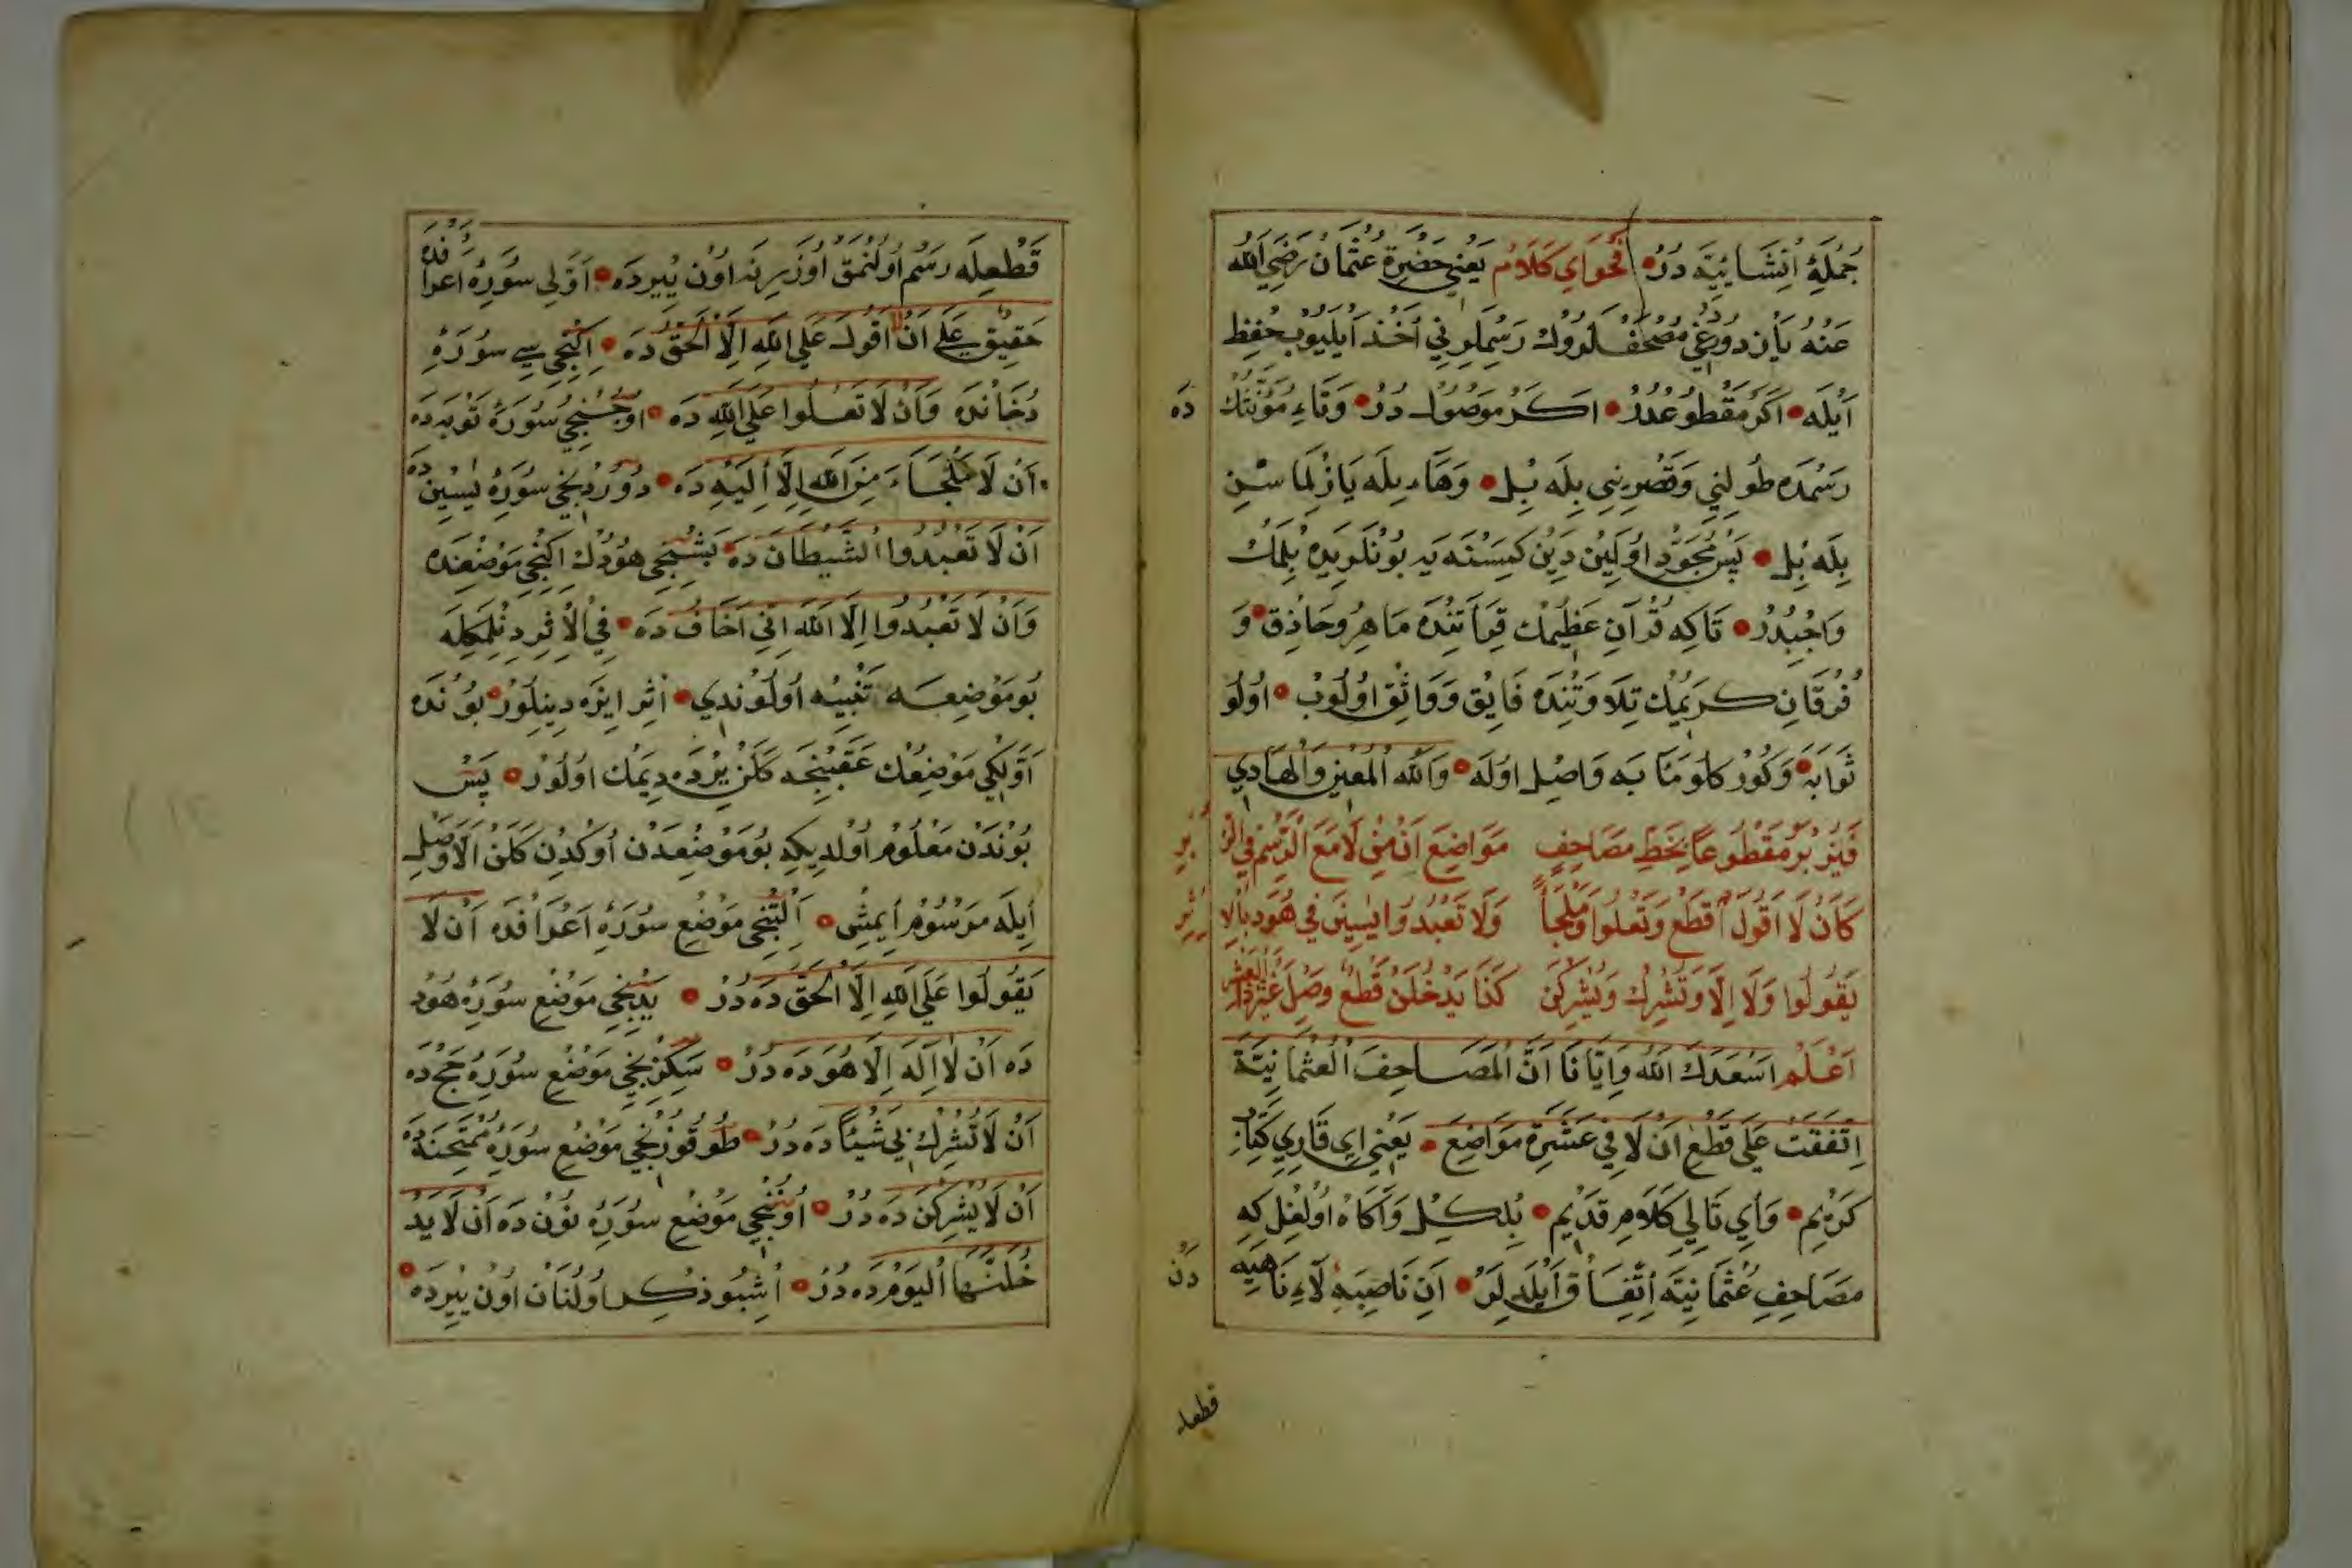 جُمْلَهِٔ اِنْشَائِيَّه دُرْ فَحْوَاىِ كَلَامْ يَعْنِي حَضْرَةِ عُثْمَانْ رَضِيَ اللّٰهُ
عَنْهُ يَازْدُوغِي مُصْحَفْلَرُوكْ رَسْمِلَرِنِي اَخْذْ اَيْلَيُوبْ حِفِظْ
اَيْلَه اَكَرْ مَقْطُوعْدُرْ اَكَرْ مَوْصُولْ دُرْ وَتَاءِ مُؤَنَّثْكْ دَه
رَسْمْدَه طُولِنِي وَقَصْرِينِي بِلَه بِلْ وَهَاءِ بِلَه يَازِلْمَاسْنِ
بِلَه بِلْ پَسْ مُجَوِّدْ اوُلَيِنْ دِيَنْ كِمْسَنَه يَه بُونْلَرِيدَه بِلْمَكْ
وَاجِبْدُرْ تَاكِه قُرْآنِ عَظِيمْكْ قِرَأَتِنْدَه مَاهِرْ وَحَاذِقْ وَ
فُرْقَانِ كَرِيمْكْ تِلَاوَتِنْدَه فَايِقْ وَوَاثِقْ اوُلُوبْ اوُلُو
ثَوَابَه وَكُورْكَلُو مَئَابَه وَاصِلْ اوُلَه وَاللّٰهُ الْمُعِينُ وَالْهَادِي
فَيَنْزِبُرْ مَقْطُوعًا بِخَطِّ مَصَاحِفٍ مَوَاضِعَ اَنْ مِنْ لَا مَعَ الرَّسْمِ فِي الزُّ بُرِ
كَاَنْ لَا اَقُولَ اقْطَعْ وَتَعْلُوا وَمَلْجَأً وَلَا تَعْبُدُوا يٰسِينَ فِي هُودَ بِالْاِ ثْرِ
يَقُولُوا وَلَا اِلَّا وَتُشْرِكْ وَيُشْرِكْنَ كَذَا يَدْخُلَنْ قَطْعٌ وَصِلْ غَيْرَ ذَا الْعَشْرِ
اَعْلَمْ اَسْعَدَكَ اللّٰهُ وَاِيَّانَا اَنَّ الْمَصَاحِفَ الْعُثْمَانِيَّةَ
اِتَّفَقَتْ عَلَى قَطْعِ اَنْ لَا فِي عَشَرَةِ مَوَاضِعَ يَعْنِي اِي قَارِئِ كِتَابِ
كَرِيمْ وَاَيِ تَالِي كَلَامِ قَدِيمْ بِلْكِلْ وَآكَاهْ اوُلْغِلْ كِه
مَصَاحِفِ عُثْمَانِيَّه اِتِّفَاقْ اَيْلَدِلَرْ اَنِ نَاصِبَه لَاءِ نَاهِيَه دَنْ
قطعله
قَطْعِلَه رَسْمْ اوُلُنْمَقْ اوُزَرِينَه اوُنْ يِيرْدَه اَوَّلِي سُورَهِٔ اَعْرَافْدَه
حَقِيقٌ عَلَى اَنْ لَا اَقُولَ عَلَى اللّٰهِ اِلَّا الْحَقَّ دَه اِكِنْجِي سِي سُورَهِٔ
دُخَانْدَه وَاَنْ لَا تَعْلُوا عَلَى اللّٰهِ دَه اوُچُنْجِي سُورَهِٔ تَوْبَه دَه
اَنْ لَا مَلْجَاءَ مِنَ اللّٰهِ اِلَّا اِلَيْهِ دَه دُورْدِنْجِي سُورَهِٔ يٰسِينْ دَه
اَنْ لَا تَعْبُدُوا الشَّيْطَانَ دَه بَشِنْجِي هُودُكْ اِكِنْجِي مَوْضِعِنْدَه
وَاَنْ لَا تَعْبُدُوا اِلَّا اللّٰهَ اِنِّي اَخَافُ دَه فِي الْاِثْرِ دِنِلْمَكِلَه
بُو مَوْضِعَه تَنْبِيه اوُلُونْدِي اَثِرْ ايزَه دِينِلُورْ بُونْدَه
اَوَّلْكِي مَوْضِعِكْ عَقَبِنْجَه كَلَنْ يِرْدَه دِيمَكْ اوُلُورْ پَسْ
بُونْدَنْ مَعْلُومْ اوُلْدِيكِه بُو مَوْضِعْدَنْ اوُكْدِنْ كَلَنْ اَلَّا وَصْلِ
اِيلَه مَرْسُومْ اِيمِشْ اَلْتِنْجِي مَوْضِعْ سُورَهِٔ اَعْرَافْدَه اَنْ لَا
يَقُولُوا عَلَى اللّٰهِ اِلَّا الْحَقَّ دَه دُرْ يَدِنْجِي مَوْضِعْ سُورَهِٔ هُودْ
دَه اَنْ لَا اِلٰهَ اِلَّا هُوَ دَه دُرْ سَكِزِنْجِي مَوْضِعْ سُورَهِٔ حَجْ دَه
اَنْ لَا تُشْرِكْ بِي شَيْئًا دَه دُرْ طُوقُوزِنْجِي مَوْضِعْ سُورَهِٔ مُمْتَحِنَه دَه
اَنْ لَا يُشْرِكْنَ دَه دُرْ اوُنُنْجِي مَوْضِعْ سُورَهِٔ نُونْ دَه اَنْ لَا يَدْ
خُلَنَّهَا الْيَوْمَ دَه دُرْ اِشْبُو ذِكِرْ اوُلُنَانْ اوُنْ يِيرْدَه